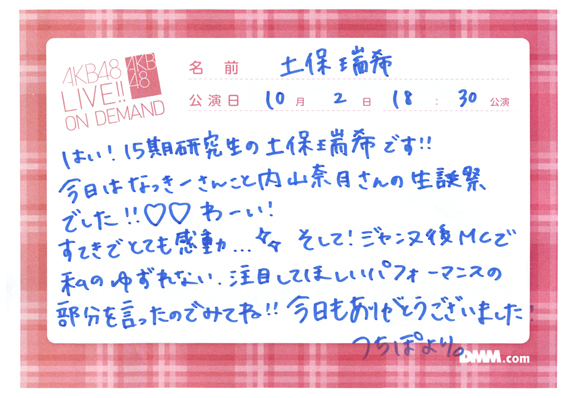 AKB48
LIVE!!
ON DEMAND
AKB
48
名前 土保瑞希
公演日 10月 2日 18:30公演
はい!15期研究生の土保瑞希です!!
今日はなっきーさんこと内山奈月さんの生誕祭
でした!!♡♡わーい!
すてきでとても感動...✧✧ そして!ジャンヌ後MCで
私のゆずれない、注目してほしいパフォーマンスの
部分を言ったのでみてね!!今日もありがとうございました!
つちぽより。
DMM.com